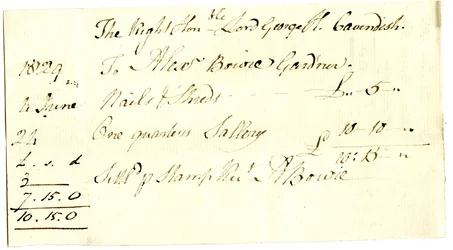 The Right Hon.ble Lord George H. Cavendish.
1829
To Alexr Bowie Gardner.
4 June Nails & Shreds £ „ 5 „
24 One quarters Sallery 10 „ 10 „
£ 10 „ 15 „
£ . s . d
3
7 . 15 . 0
10 . 15 . 0
Settd p Stamp Rect A Bowie